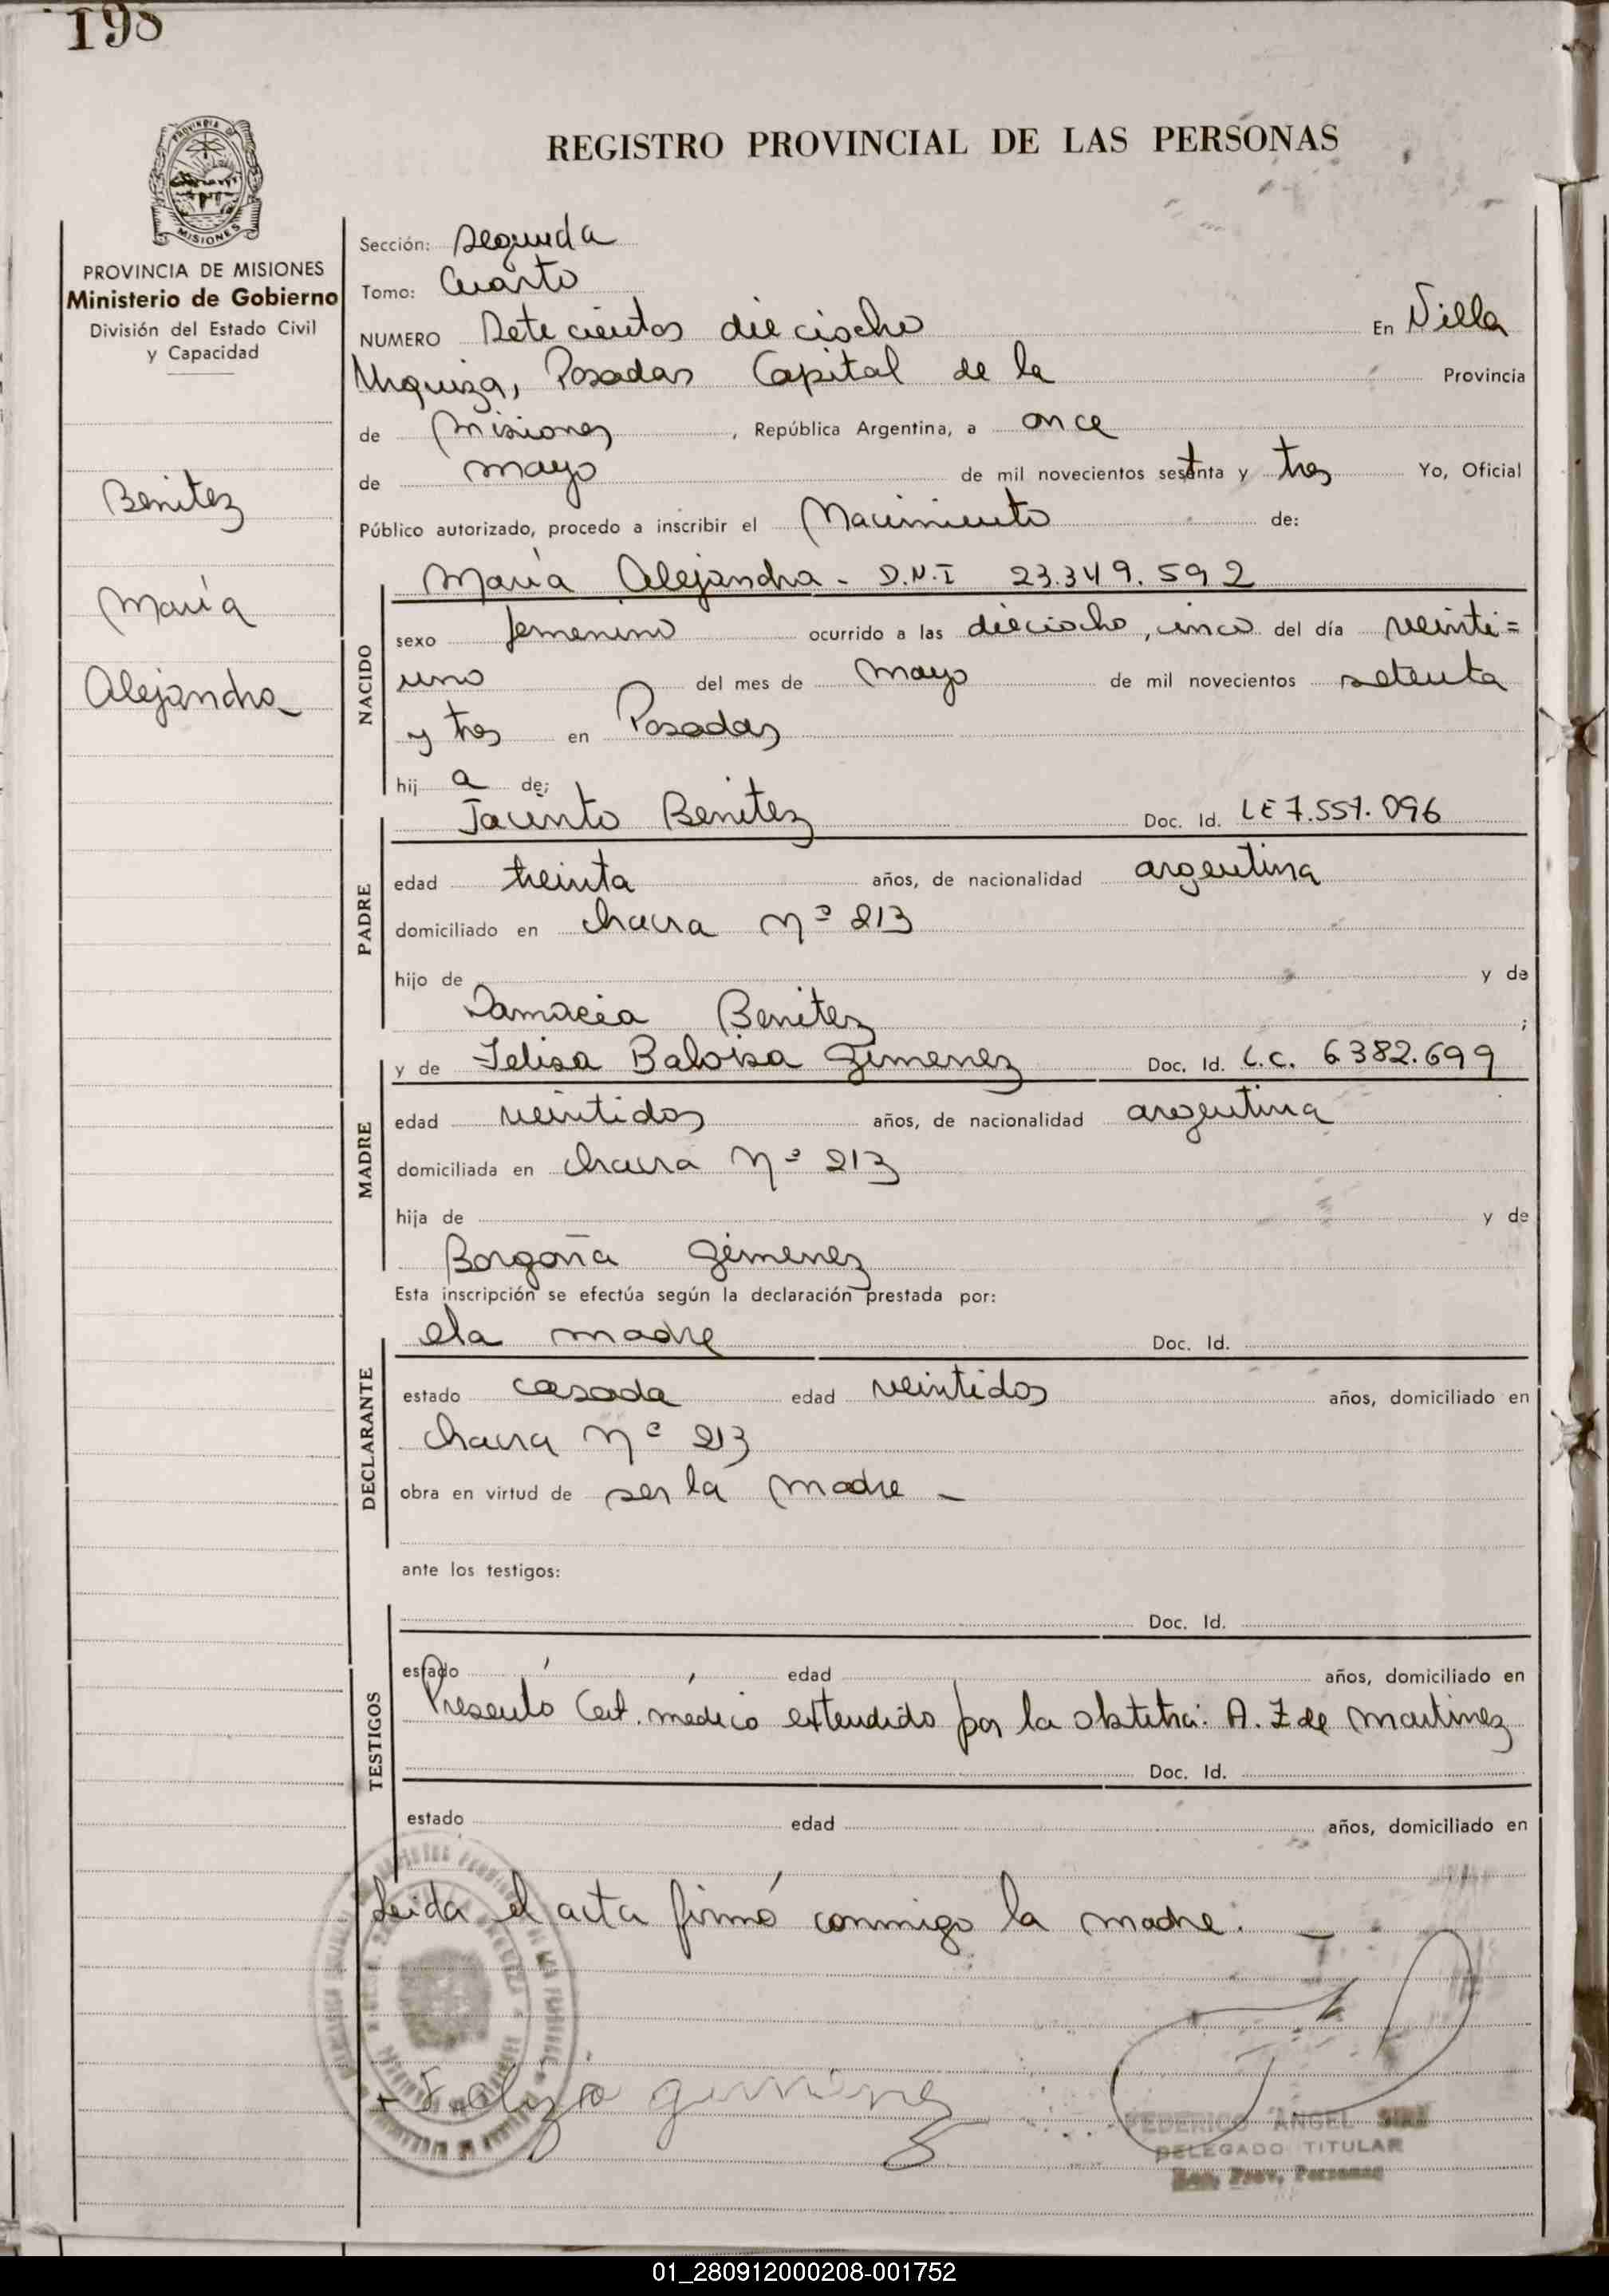 198
REGISTRO PROVINCIAL DE LAS PERSONAS
PROVINCIA DE
MISIONES
PROVINCIA DE MISIONES
Ministerio de Gobierno
División del Estado Civil
y Capacidad
Benitez
María
Alejandra
Sección: segunda
Tomo: Cuarto
NUMERO Setecientos dieciocho En Villa
Urquiza, Posadas Capital de la Provincia
de Misiones, República Argentina, a once
de mayo de mil novecientos setenta y tres Yo, Oficial
Público autorizado, procedo a inscribir el Nacimiento de:
María Alejandra - D.N.I 23.349.592
NACIDO
sexo femenino ocurrido a las dieciocho, cinco del día veinti=
uno del mes de mayo de mil novecientos setenta
y tres en Posadas
hij a de;
Jacinto Benitez Doc. Id. LE 7.557.096
PADRE
edad treinta años, de nacionalidad argentina
domiciliado en chacra Nº 213
hijo de y de
Damacia Benitez ;
y de Felisa Baloisa Gimenez Doc. Id. L.C. 6382.699
MADRE
edad veintidos años, de nacionalidad argentina
domiciliada en chacra Nº 213
hija de y de
Borgoña Gimenez
Esta inscripción se efectúa según la declaración prestada por:
ela madre Doc. Id.
DECLARANTE
estado casada edad veintidos años, domiciliado en
chacra Nº 213
obra en virtud de ser la madre -
ante los testigos:
Doc. Id.
TESTIGOS
estado edad años, domiciliado en
Presentó Cert. médico extendido por la obstetra: A. Z de Martinez
Doc. Id.
estado edad años, domiciliado en
Leida el acta firmó conmigo la madre. -
+ Feliza gimenez
FEDERICO ANGEL
DELEGADO TITULAR
Reg. Prov. Personas
01_280912000208-001752